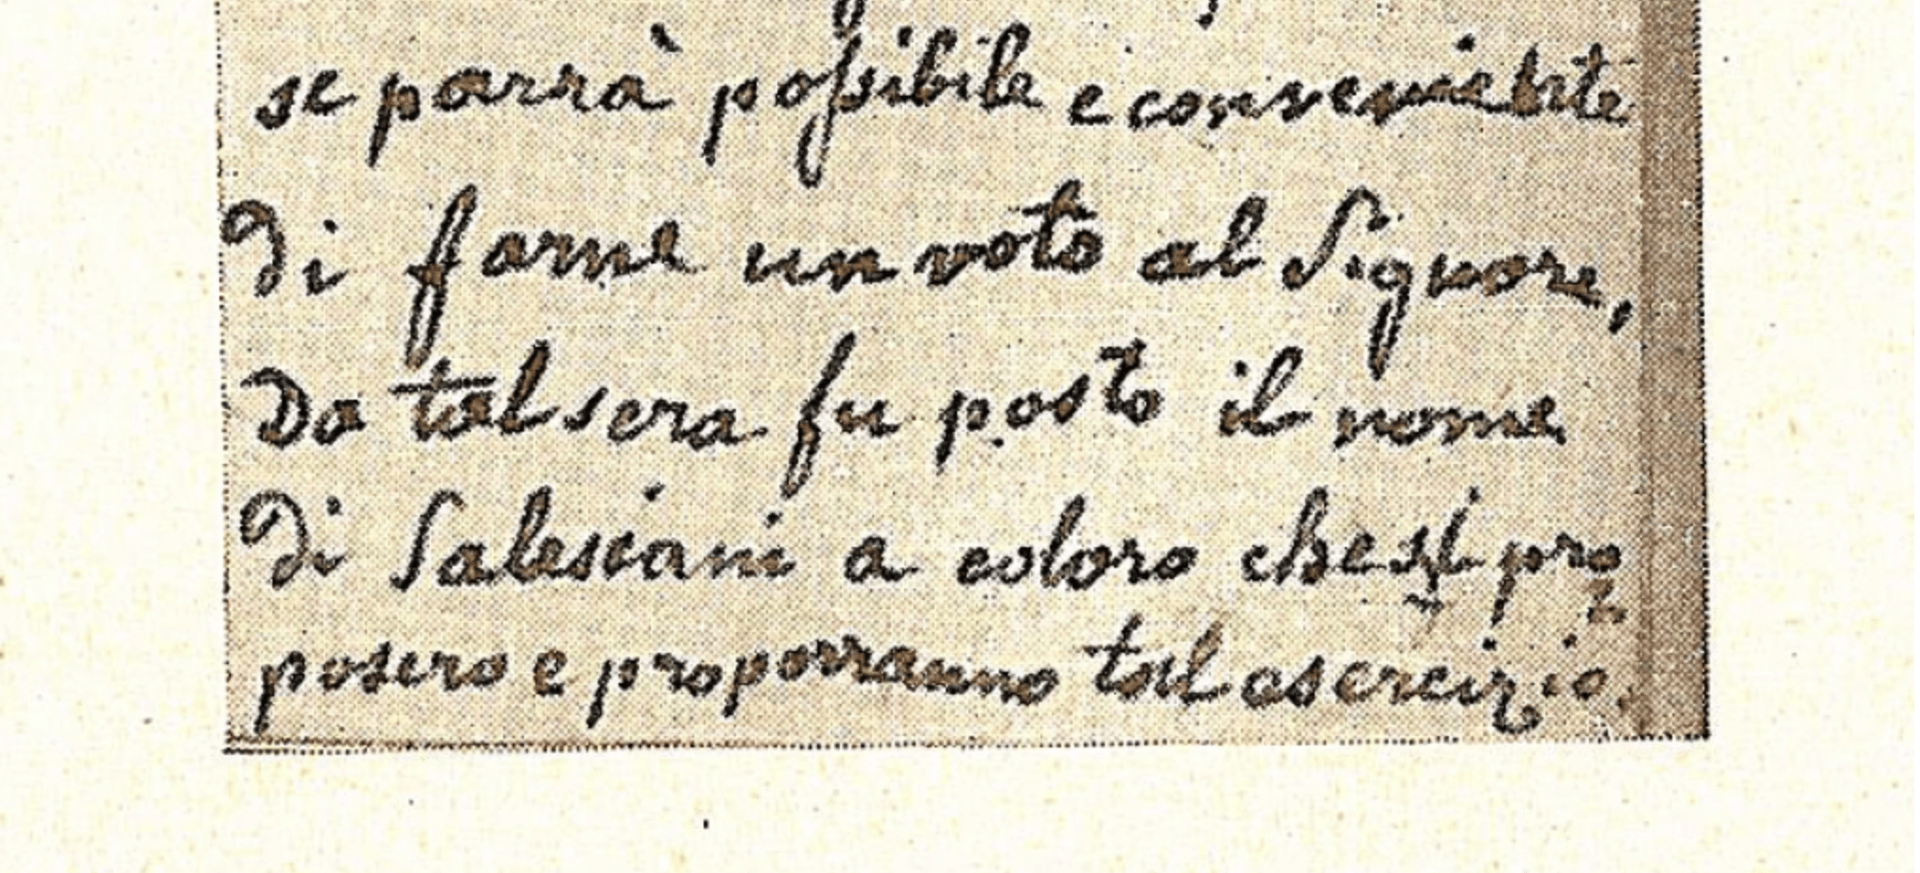 se parrà possibile e conveniente
di farne un voto al Signore,
Da tal sera fu posto il nome
di Salesiani a coloro che si pro
posero e proporranno tal esercizio.